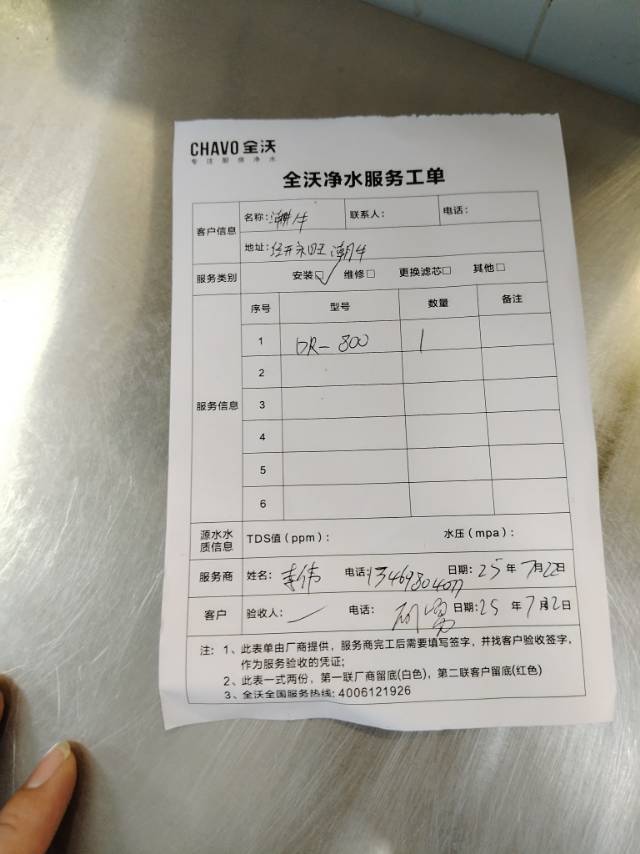 CHAVO 全沃
专注服务净水
全沃净水服务工单
客户信息 名称: 潮牛 联系人: 电话:
地址: 经开永旺 潮牛
服务类别 安装☑ 维修□ 更换滤芯□ 其他□
服务信息 序号 型号 数量 备注
1 DR-800 1
2
3
4
5
6
源水水质信息 TDS值(ppm): 水压(mpa):
服务商 姓名: 李伟 电话: 13469804077 日期: 25年7月22日
客户 验收人: 电话: 日期: 25年7月2日
注: 1、此表单由厂商提供,服务商完工后需要填写签字,并找客户验收签字,
作为服务验收的凭证;
2、此表一式两份,第一联厂商留底(白色),第二联客户留底(红色)
3、全沃全国服务热线: 4006121926